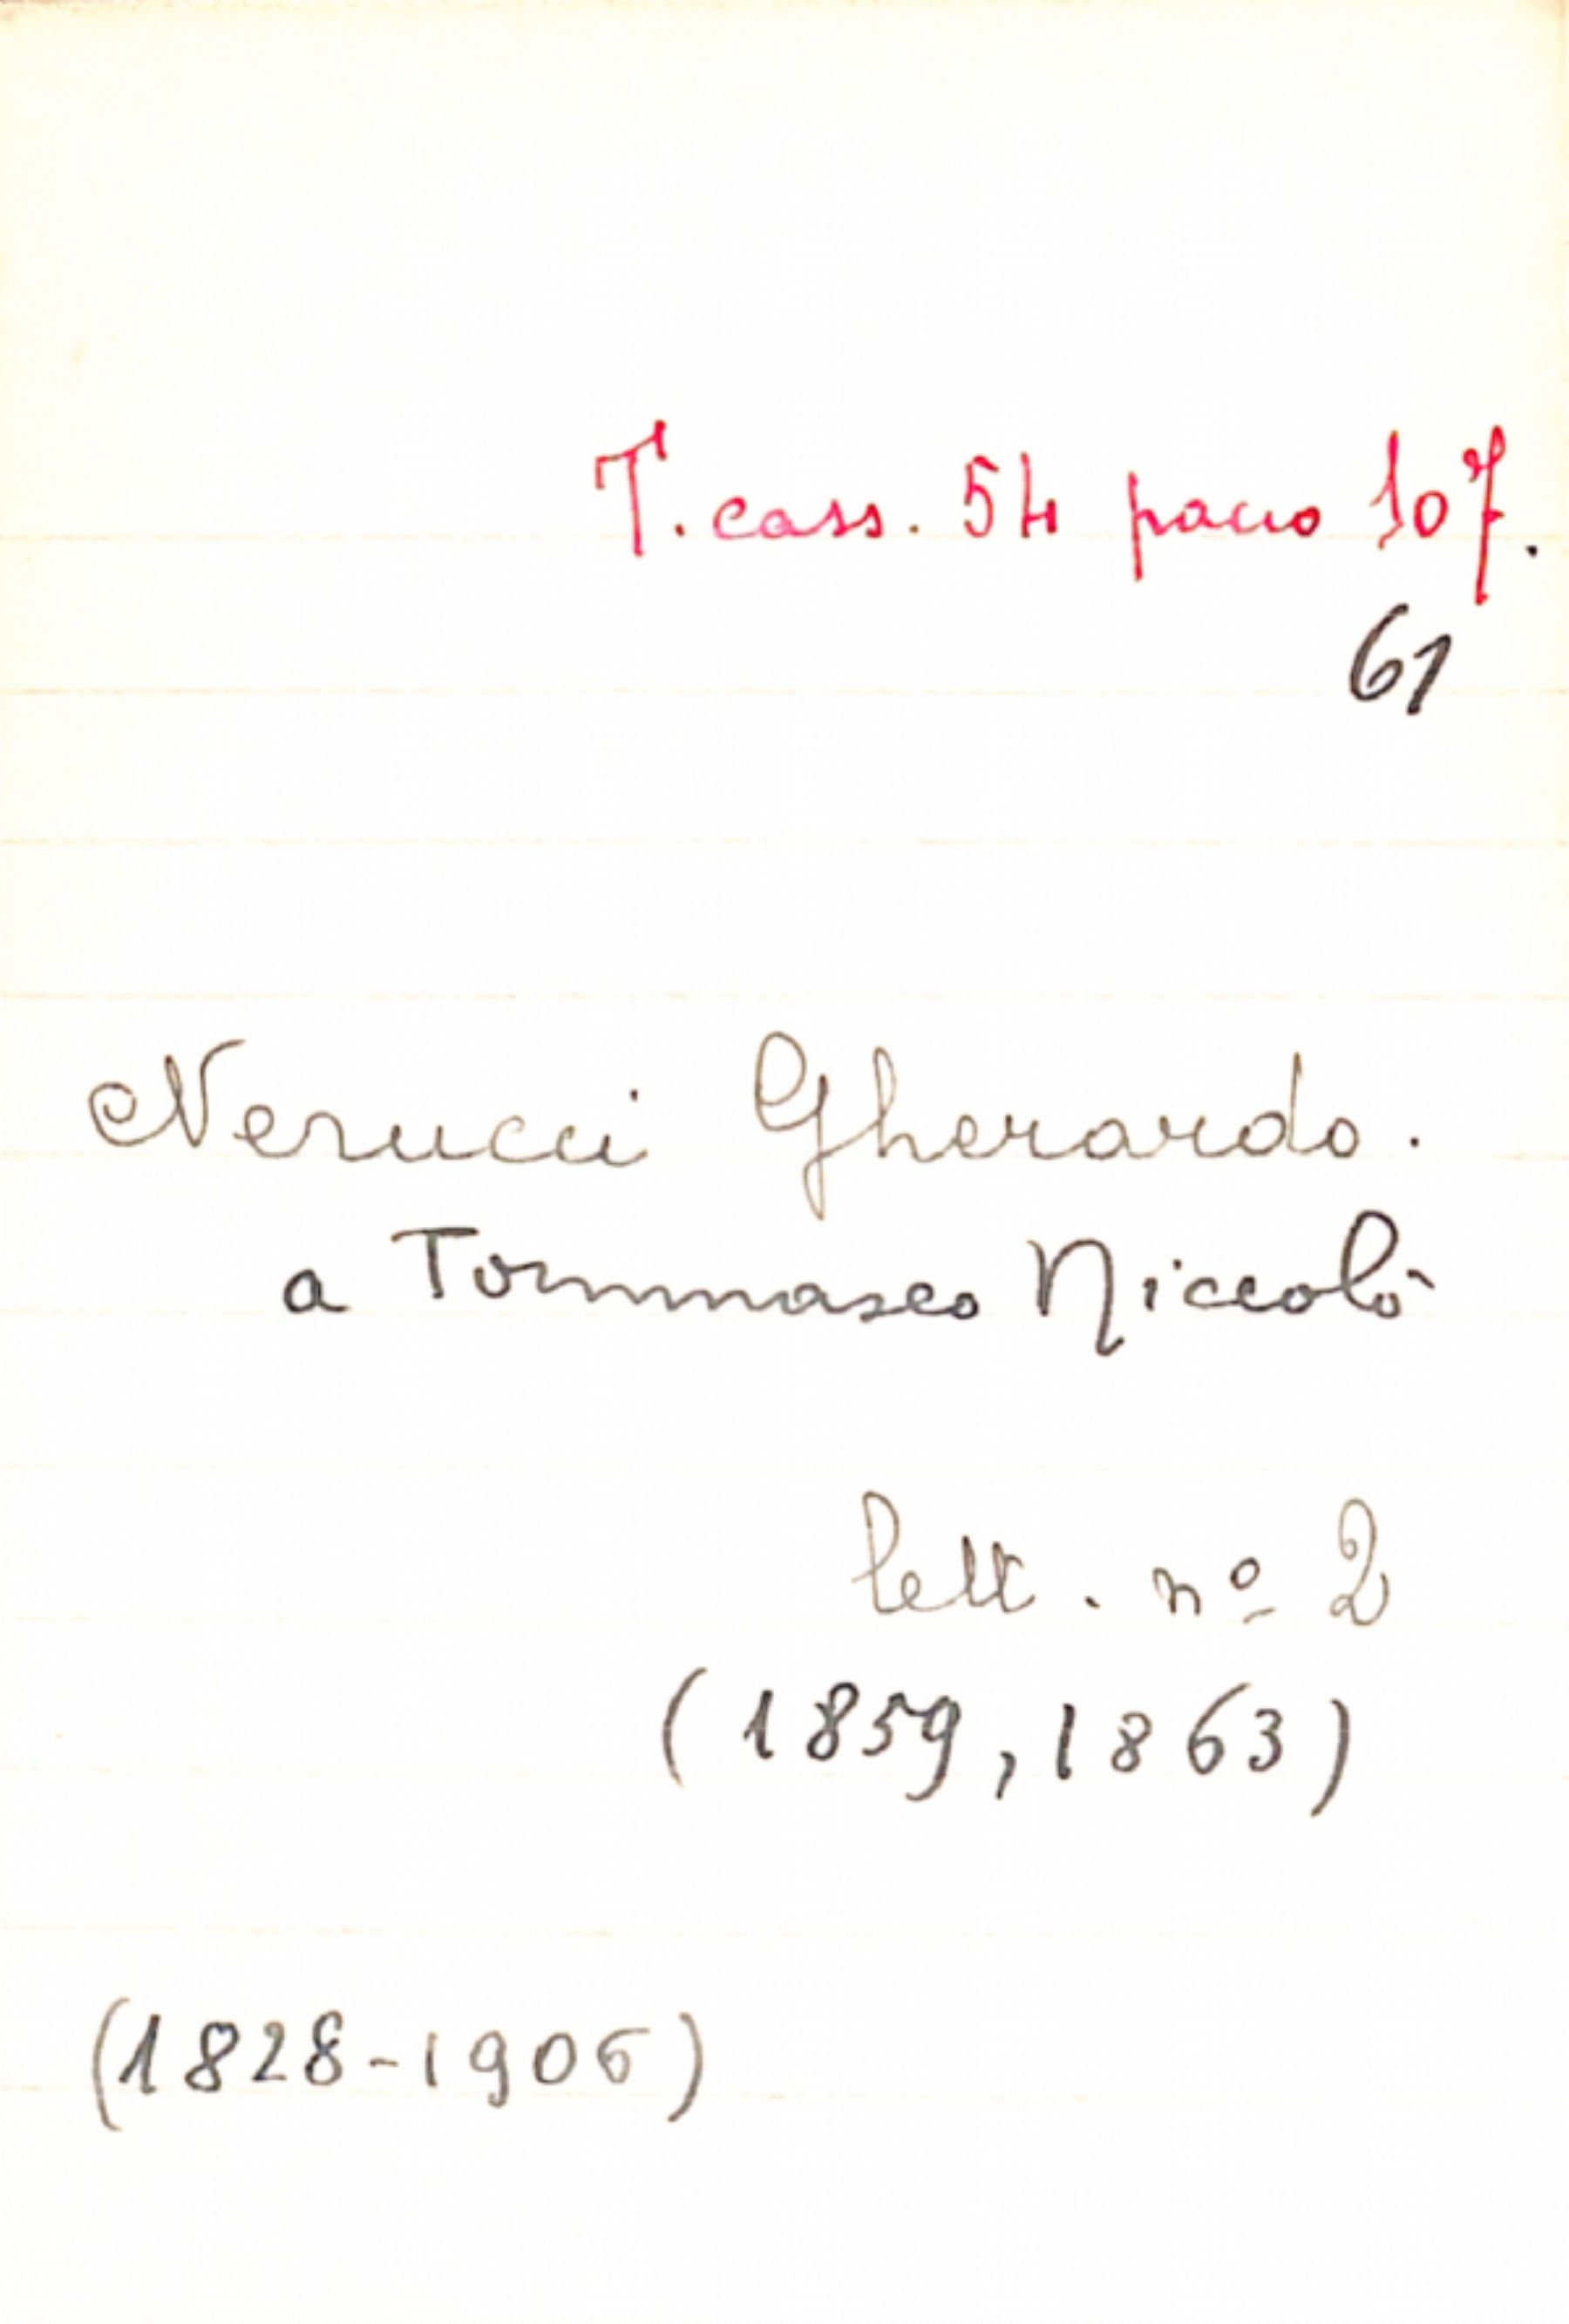 T. cass. 54 pacco 107.
61
Nerucci Gherardo.
a Tommaseo Niccolò
lett. nº 2
(1859, 1863)
(1828-1906)